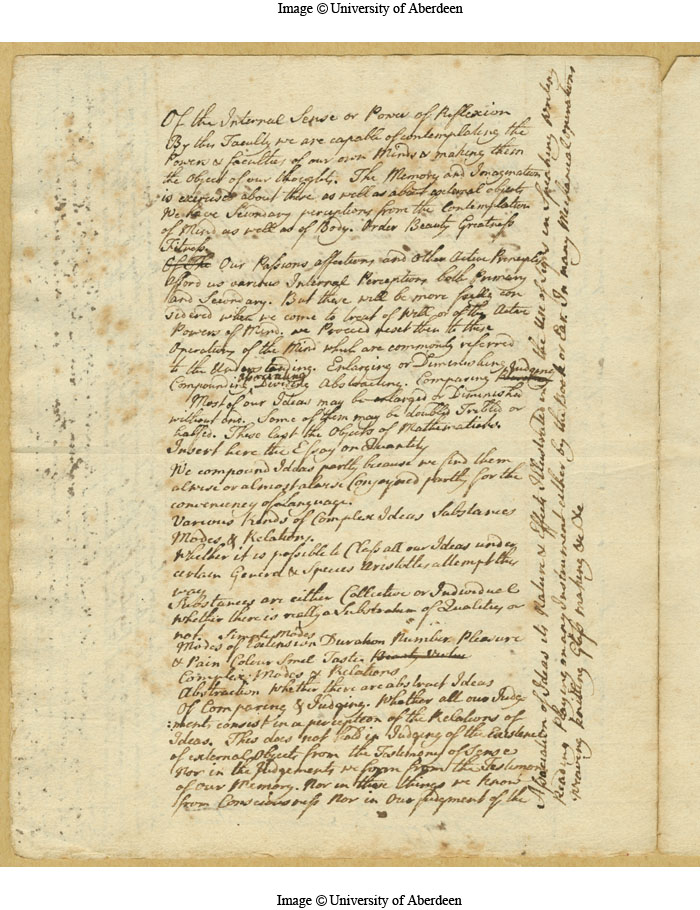 Image © University of Aberdeen
Of the Internal Sense or Power of Reflexion
By this Faculty we are capable of contemplating the
Powers & faculties of our own Minds & making them
the Object of our thoughts. The Memory and Imagination
is exercised about these as well as about external objects
We have Secondary perceptions from the Contemplation
of Mind as well as of Body. Order Beauty Greatness
Fitness.
Of The Our Passions affections and other Active Principles
afford us various Internal Perceptions both Primary
and Secondary. But these will be more fully con
sidered when we come to treat of Will or of the Active
Powers of Mind. we Proceed next then to these
Operations of the Mind which are commonly referred
to the Understanding. Enlarging or Diminishing
Compounding Dividing Abstracting. Comparing Judging
Most of our Ideas may be enlarged or Diminished
without end. Some of them may be doubled Trebled or
halfed. These last the Objects of Mathematicks.
Insert here the Essay on Quantity
We compound Ideas partly because we find them
always or almost always Conjoyned partly for the
conveniency of Language.
Various Kinds of Complex Ideas Substances
Modes & Relations.
Whether it is possible to Class all our Ideas under
certain Genera & Species Aristotles attempt this
way
Substances are either Collective or Individual
Whether there is really a Substratum of Qualities or
not. Simple Modes
Modes of Extension Duration Number Pleasure
& Pain Colour Smel Taste Beauty Virtue
Complex Modes & Relations
Abstraction Whether there are abstract Ideas
Of Comparing & Judging. Whether all our Judg
:ments consist in a perception of the Relations of
Ideas. This does not hold in Judging of the Existence
of external Objects from the Testimony of Sense
Nor in the Judgements we form from the Testimony
of our Memory. Nor in those things we know
from Consciousness Nor in our Judgment of the
Association of Ideas its Nature & Effects Illustrated in the Use of Signs in Speaking writing
Reading Playing on any Instrument either by the book or Ear. In many Mechanical operations
weaving knitting Glass making &c &c
Image © University of Aberdeen